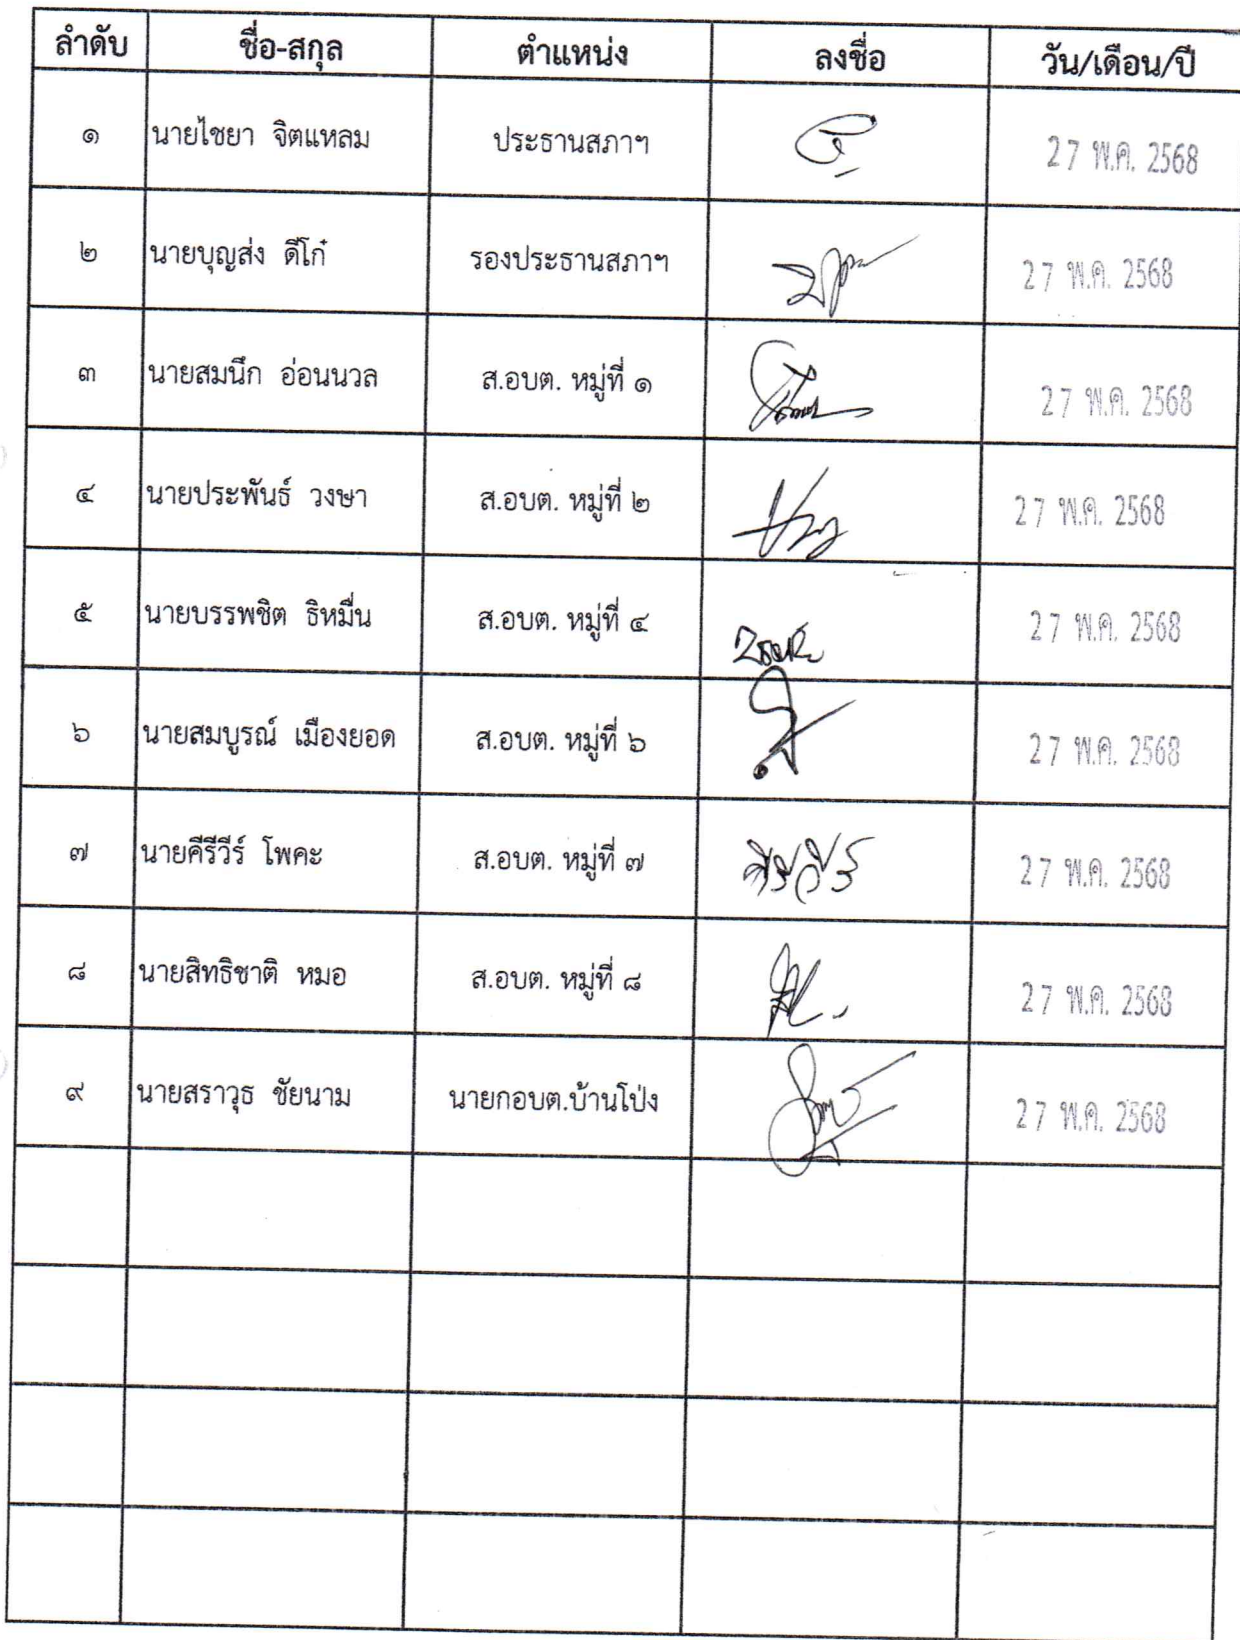 ลำดับ ชื่อ-สกุล ตำแหน่ง ลงชื่อ วัน/เดือน/ปี
๑ นายไชยา จิตแหลม ประธานสภาฯ 27 พ.ค. 2568
๒ นายบุญส่ง ดีโก๋ รองประธานสภาฯ 27 พ.ค. 2568
๓ นายสมนึก อ่อนนวล ส.อบต. หมู่ที่ ๑ 27 พ.ค. 2568
๔ นายประพันธ์ วงษา ส.อบต. หมู่ที่ ๒ 27 พ.ค. 2568
๕ นายบรรพชิต ธิหมื่น ส.อบต. หมู่ที่ ๔ 27 พ.ค. 2568
๖ นายสมบูรณ์ เมืองยอด ส.อบต. หมู่ที่ ๖ 27 พ.ค. 2568
๗ นายคีรีวีร์ โพคะ ส.อบต. หมู่ที่ ๗ คีรีวีร์ 27 พ.ค. 2568
๘ นายสิทธิชาติ หมอ ส.อบต. หมู่ที่ ๘ 27 พ.ค. 2568
๙ นายสราวุธ ชัยนาม นายกอบต.บ้านโป่ง 27 พ.ค. 2568